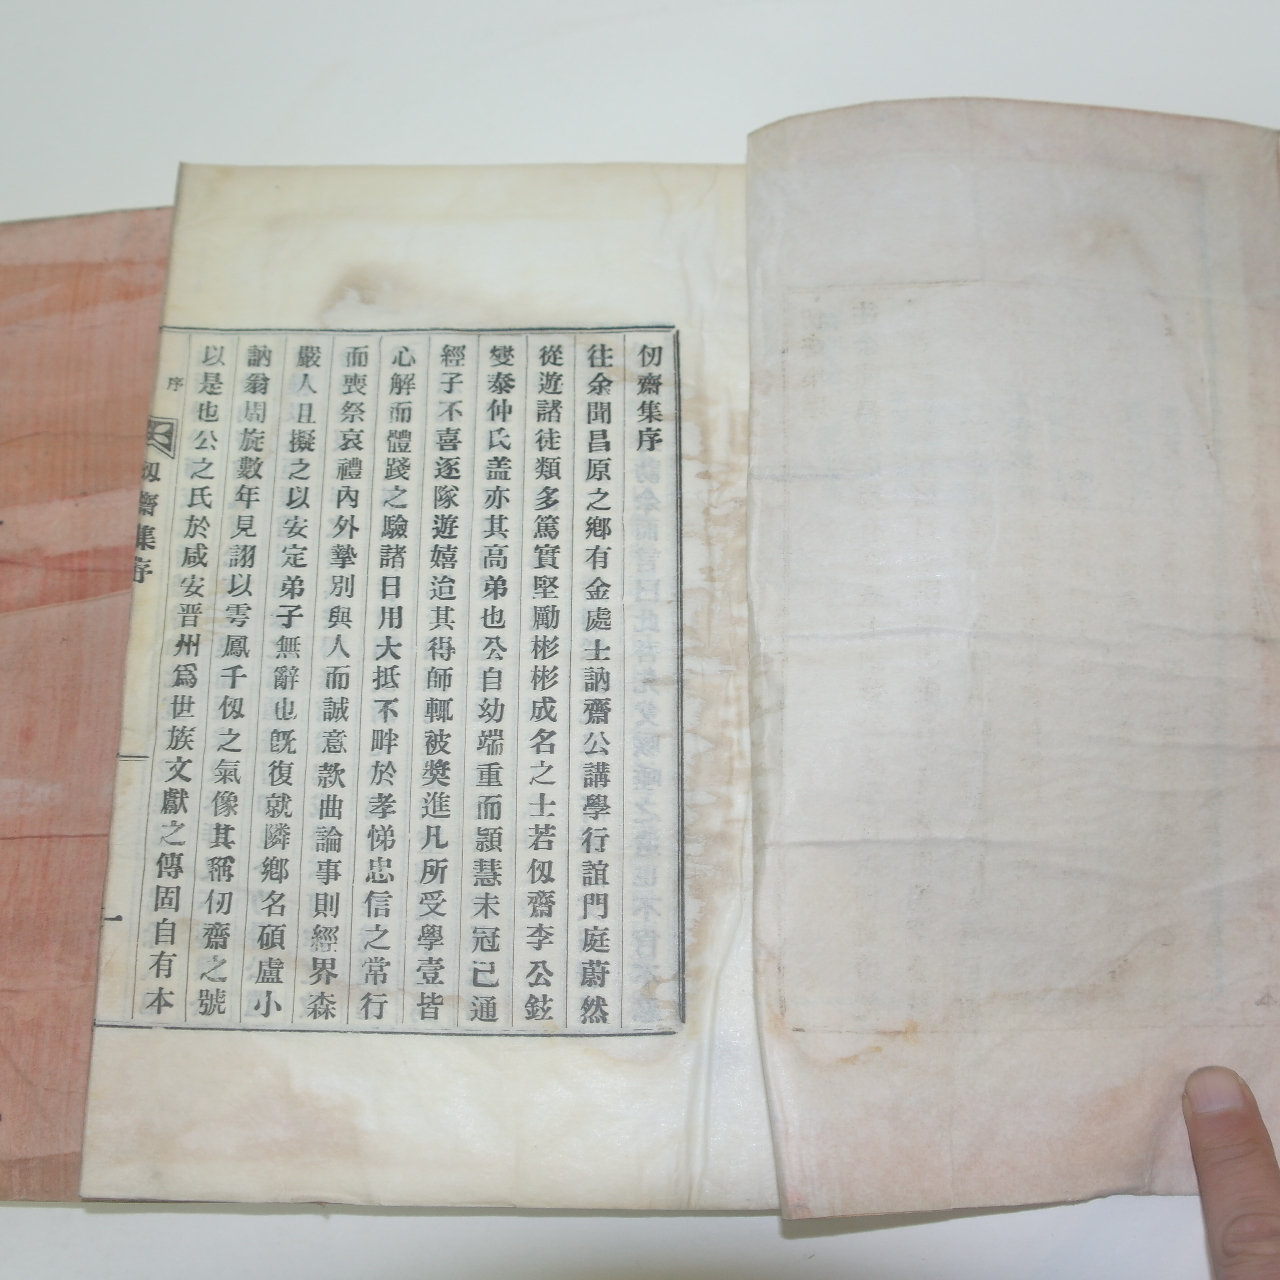 仞齋集序
往余聞昌原之鄕有金處士訥齋公講學行誼門庭蔚然
從遊諸徒類多篤實堅勵彬彬成名之士若仭齋李公鉉
燮泰仲氏盖亦其高弟也公自幼端重而頴慧未冠已通
經子不喜逐隊遊嬉迨其得師輒被奬進凡所受學壹皆
心解而體踐之驗諸日用大抵不畔於孝悌忠信之常行
而喪祭哀禮內外摯別與人而誠意款曲論事則經界森
嚴人且擬之以安定弟子無辭也旣復就隣鄕名碩盧小
訥翁周旋數年見詡以雩鳳千仭之氣像其稱仞齋之號
以是也公之氏於咸安晋州爲世族文獻之傳固自有本
序
仭齋集序
一